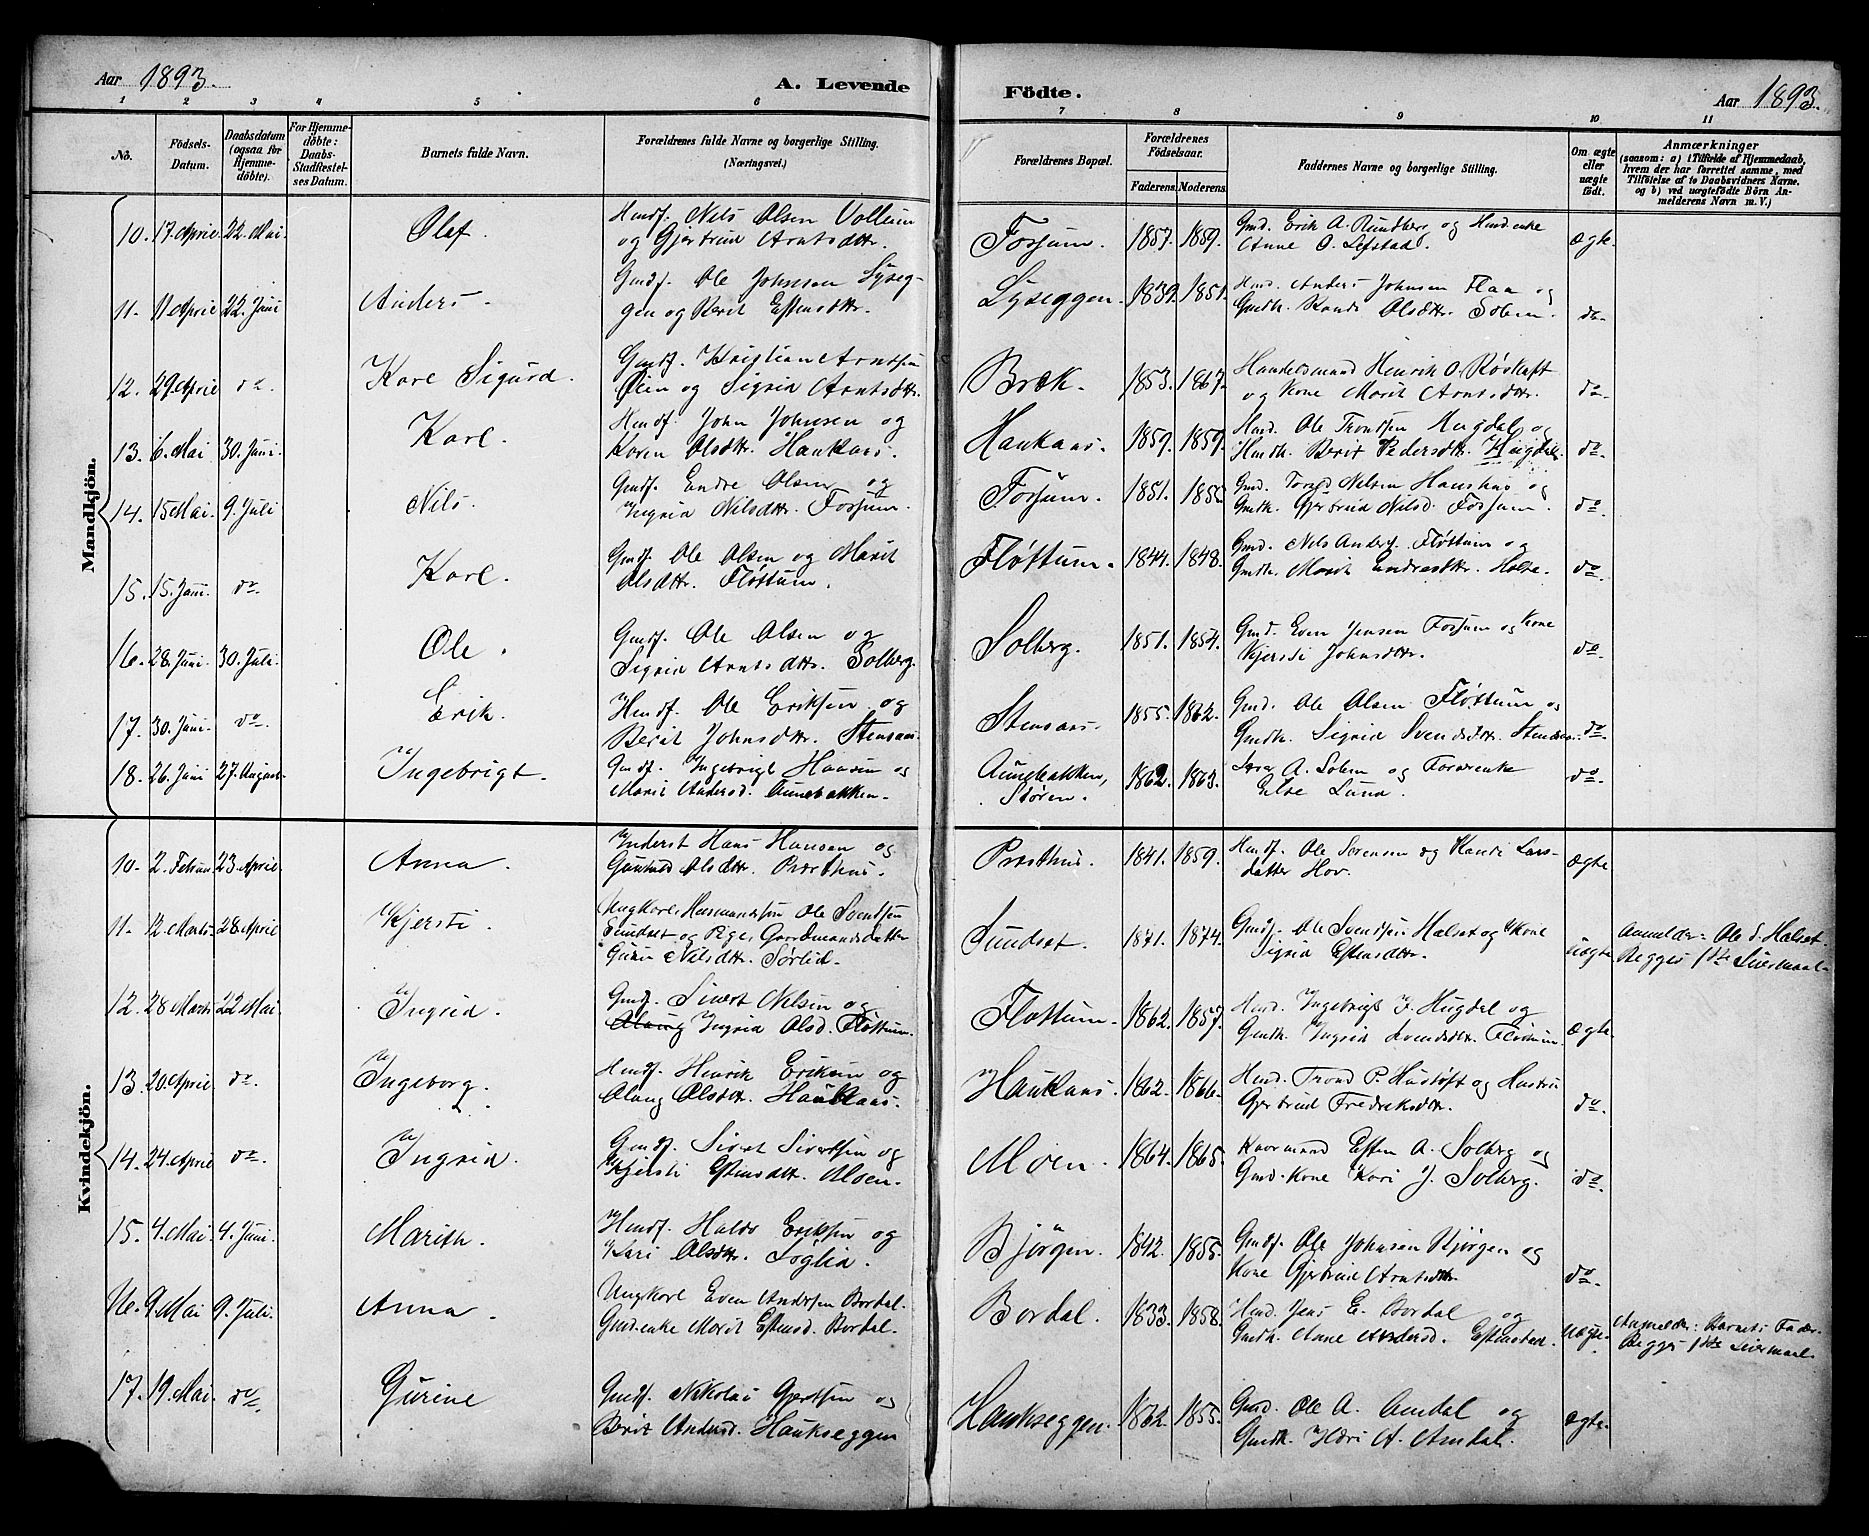 Aar 1893.
A. Levende Födte.
Aar 1893.
1 2 3 4 5 6 7 8 9 10 11
No.
Födsels-Datum.
Daabsdatum (ogsaa for Hjemme-döbte).
For Hjemme-döbte: Daabs-Stadfestel-ses Datum.
Barnets fulde Navn.
Forældrenes fulde Navne og borgerlige Stilling.
(Næringsvei.)
Forældrenes Bopæl.
Forældrenes Födselsaar.
Faderens. Moderens.
Faddernes Navne og borgerlige Stilling.
Om ægte eller uægte født.
Anmærkninger
(saasom: a) i Tilfælde af Hjemmedaab,
hvem der har forrettet samme, med
Tilföielse af to Daabsvidners Navne,
og b) ved uægtefödte Börn An-
melderens Navn m. V.)
Mandkjön.
10. 17. April 22. Mai. Olef. Husmf. Nils Olsen Vollum
og Gjertrud Arntsdtr. Fossum. 1857. 1859. Gmd. Erik A. Rundberg og Husd.enke
Anne O. Lefstad. Ægte.
11. 11 April 22. Juni Anders. Gmdf. Ole Johnsen Lyseg-
gen og Berit Estensdttr. Lyseggen. 1839. 1851. Husd. Anders Johnsen Flaa og
Gmdk. Randi Olsdttr. Solem. do.
12. 29. April do. Karl Sigurd. Gmdf. Kristian Arntsen
Øien og Sigrid Arntsdttr. Bræk. 1853. 1867. Handelsmand Henrik O. Røskaft
og Kone Marit Arntsdttr. do.
13. 6. Mai 30. Juni. Karl. Husmf. John Johnsen og
Karen Olsdttr. Haukaas. Haukaas. 1859. 1859. Husd. Ole Trondsen Hugdal og
Husdk. Berit Pedersdttr. Hugdal. do.
14. 15 Mai. 9. Juli Nils. Gmdf. Endre Olsen og
Ingrid Nilsdttr. Fossum. Fossum. 1851. Gmd. Nilsen og
Gmdk. Gjertrud Nilsd. Fossum. do.
15. 15. Juni. do. Karl. Gmdf. Ole Olsen og Marit
Olsdttr. Fløttum. Fløttum. 1844. 1848. Gmd. Nils Anders. Fløttum og
Gmdk. Marit Endresdttr. do.
16. 28. Juni. 30. Juli. Ole. Gmdf. Ole Olsen og
Sigrid Arntsdttr. Solberg. Solberg. 1851. 1854. Gmd. Even Jensen Fossum og Kone
Kjersti Johnsdttr. do.
17. 30. Juni. do. Erik. Husmf. Ole Eriksen og
Berit Johnsdttr. Stensaas. Stensaas. 1855. 1862. Gmd. Ole Olsen Fløttum og
Gmdk. Sigrid Svendsdttr. do.
18. 26. Juni 27. August. Ingebrigt. Gmdf. Ingebrigt Hansen og
Marit Andersd. Aunebakken. Aunebakken, Støren. 1862. 1863. A. Solem og
Else Lund. do.
Kvindekjön.
10. 2. Februar 23 April. Anna. Inderst Hans Hansen og
Gunhild Olsdttr. Præsthus. Præsthus. 1841. 1859. Husmf. Ole Sørensen og Randi Lars-
datter Hov. Ægte
11. 12. Marts 28. April Kjersti. Ungkarl, Husmandssøn Ole Svendsen
Sundset og Pige, Gaardmandsdatter
Guri Nilsdttr. Sørlid. Sundset. 1871. 1874. Gmdf. Ole Svendsen Halset og Kone
Sigrid Estensdttr. uægte Anmelder: Ole S. Halset.
Begges 1ste Leiermaal.
12. 28 Marts 22 Mai. Ingrid. Gmdf. Sivert Nilsen og
Ingrid Olsd. Fløttum. Fløttum. 1862. 1857. Husd. Ingebrigt J. Hugdal og
Gmdk. Ingrid Svendsdttr. Fløttum. Ægte.
13. 20. April do. Ingeborg. Husmf. Henrik Eriksen og
Olaug Olsdttr. Haukaas. Haukaas. 1862. 1866. Husd. Trond P. Hustøft og Hustru
Gjertrud Fredriksdttr. do.
14. 24. April do. Ingrid. Gmdf. Sivert Sivertsen og
Kjersti Estensdttr. Moen. Moen. 1864. 1865. Kaarmand Esten A. Solberg og
Gmd.Kone Kari J. Solberg. do.
15. 4. Mai 4. Juni. Marith. Husmf. Haldo Eriksen og
Kari Olsdttr. Søglia. Bjørgen. 1842. 1855. Gmdf. Ole Johnsen Bjørgen og
Kone Gjertrud Arntsdttr. do.
16. 9. Mai 9. Juli. Anna. Ungkarl Even Andersen Bordal.
Gmd.enke Marit Estensd. Bordal. Bordal. 1833. 1858. Husd. Jens E. Bordal og
Gmdk. Anne Andersd. Estenstad. uægte. Anmelder: Barnets Fader.
Begges 1ste Leiermaal.
17. 19. Mai. do. Gurine Gmdf. Nikolai Gjertsen og
Berit Andersd. Haukseggen Haukseggen. 1862. 1855. Gmd. Ole A. Amdal og
Gmdk. A. Amdal. ægte.